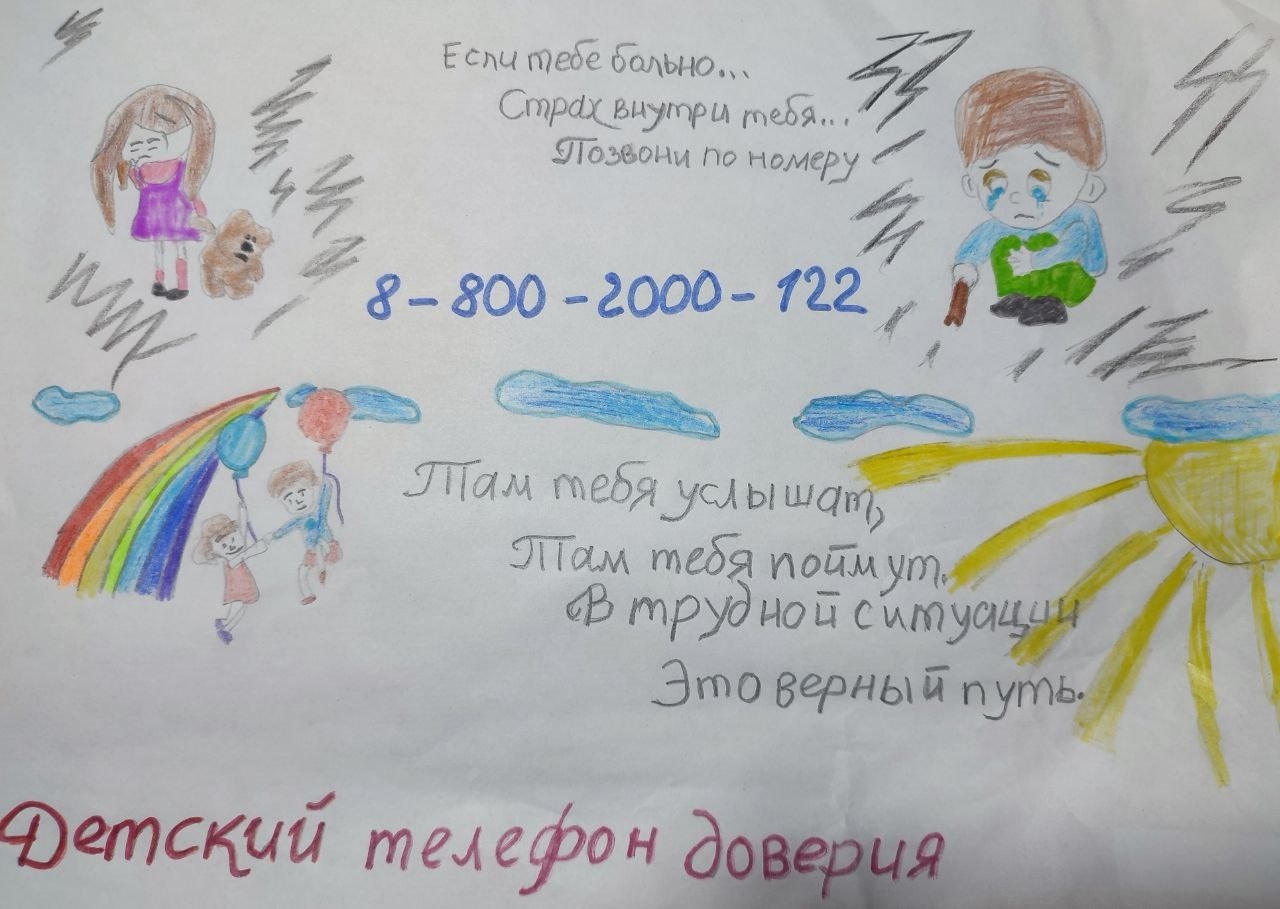 Если тебе больно...
Страх внутри тебя...
Позвони по номеру
8-800-2000-122
Там тебя услышат,
Там тебя поймут.
В трудной ситуации
Это верный путь.
Детский телефон доверия